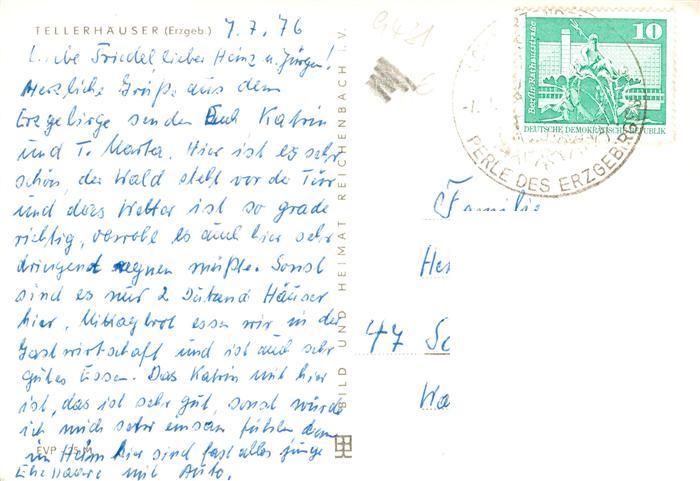 TELLERHÄUSER (Erzgeb.)
7.7.76
Liebe Friedel lieber Heinz u. Jürgen!
Herzliche Grüße aus dem
Erzgebirge senden Euch Katrin
und T. Marta. Hier ist es sehr
schön, der Wald steht vor der Tür
und das Wetter ist so grade
richtig, obwohl es auch hier sehr
dringend regnen müßte. Sonst
sind es nur 2 Dutzend Häuser
hier. Mittagbrot essen wir in der
Gastwirtschaft und ist auch sehr
gutes Essen. Das Katrin mit hier
ist, das ist sehr gut, sonst würde
ich mich sehr einsam fühlen denn
im Heim hier sind fast alles junge
Ehepaare mit Auto.
EVP -,25 M
BILD UND HEIMAT REICHENBACH i. V.
10
Berlin-Rathausstraße
DEUTSCHE DEMOKRATISCHE REPUBLIK
PERLE DES ERZGEBIRGES
Familie
47